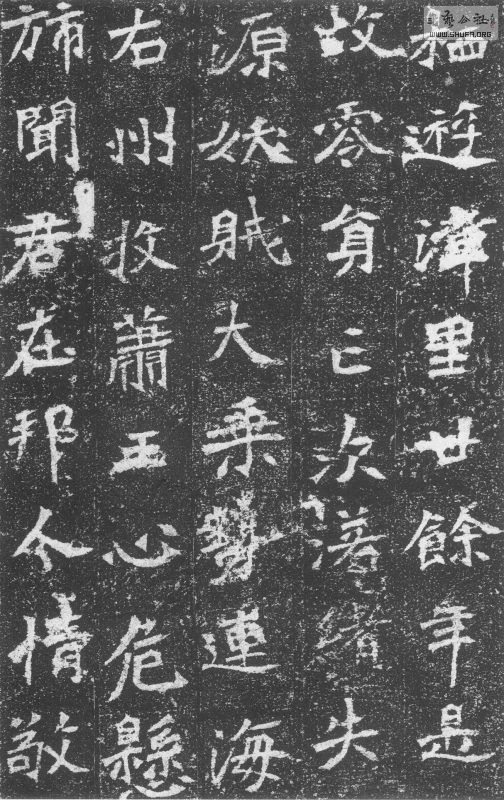 栖遊漳里廿餘年是
故零員已次緒失
源妖賊大乘勢連海
右州牧蕭王心危懸
旆聞君在邦令情敬
WWW.SHUFA.ORG